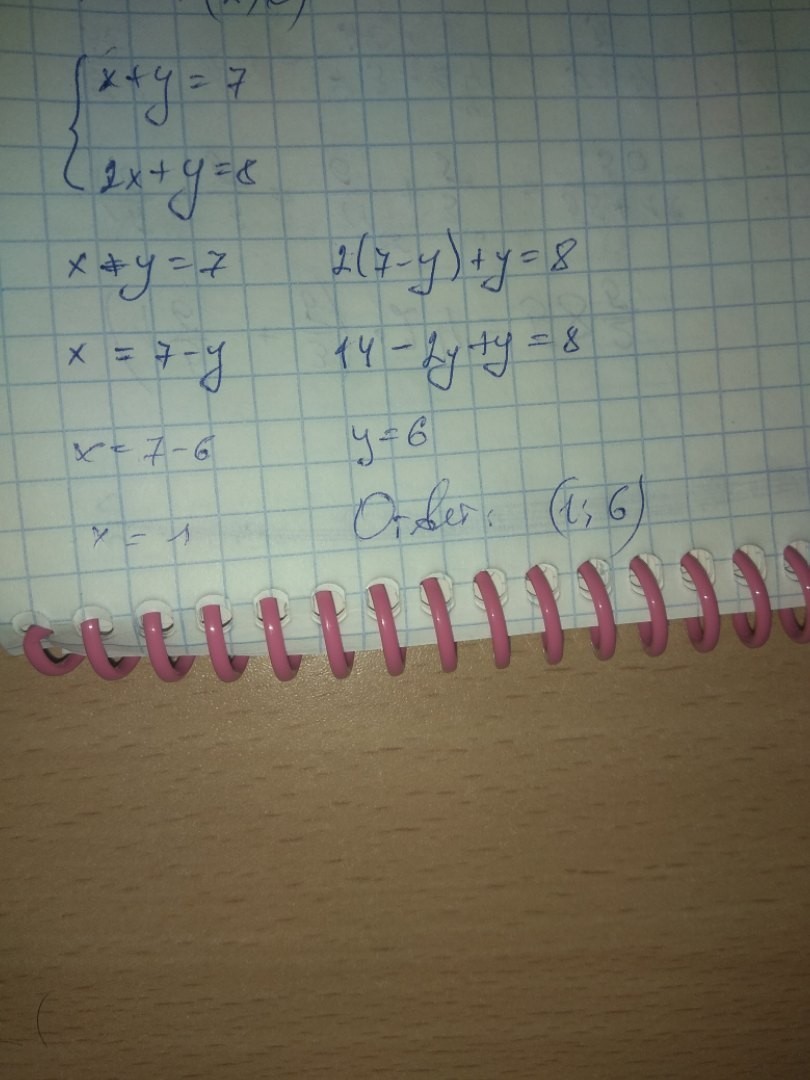 x+y=7
2x+y=8
x+y=7
2(7-y)+y=8
x=7-y
14-2y+y=8
x=7-6
y=6
x=1
Ответ: (1; 6)